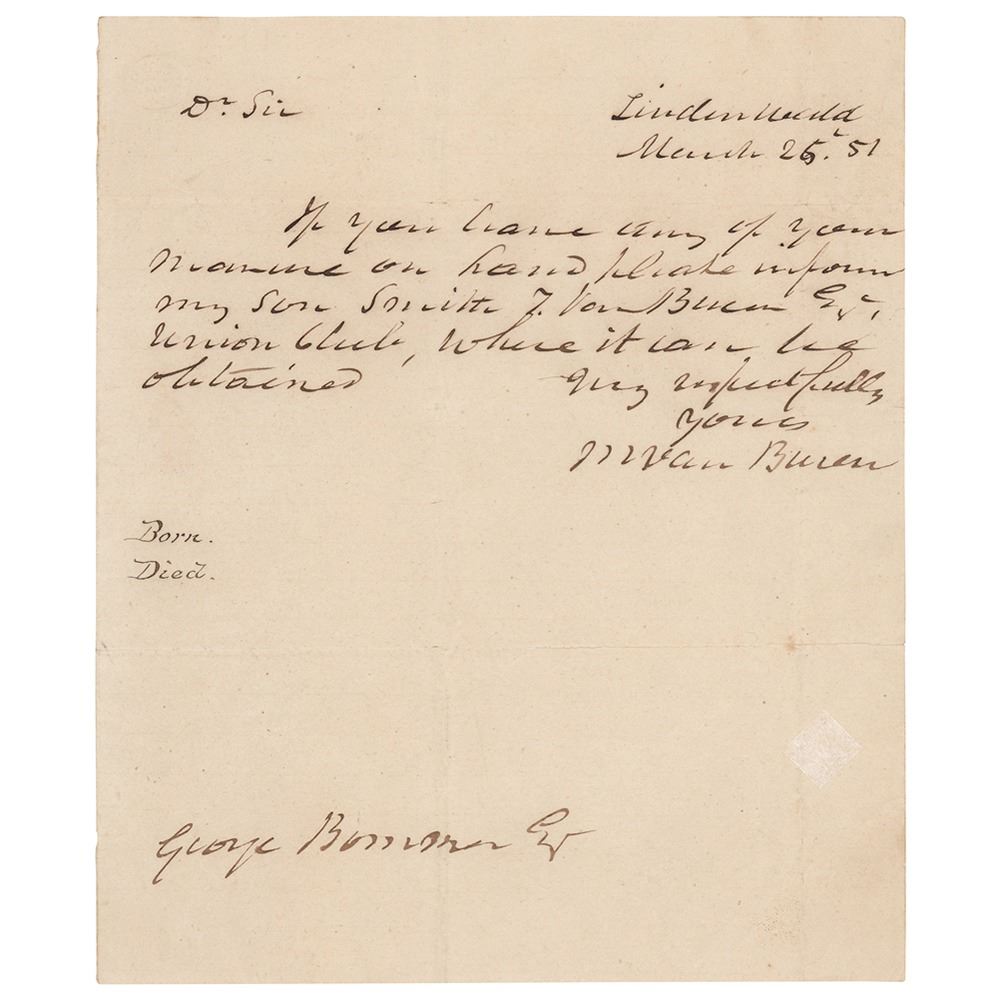 Dr. Sir
Lindenwald
March 25. 51
If you have any of your
manure on hand please inform
my son Smith T. Van Buren Esqr,
Union Club, where it can be
obtained
very respectfully
yours
M Van Buren
Born.
Died.
George Bommer Esq